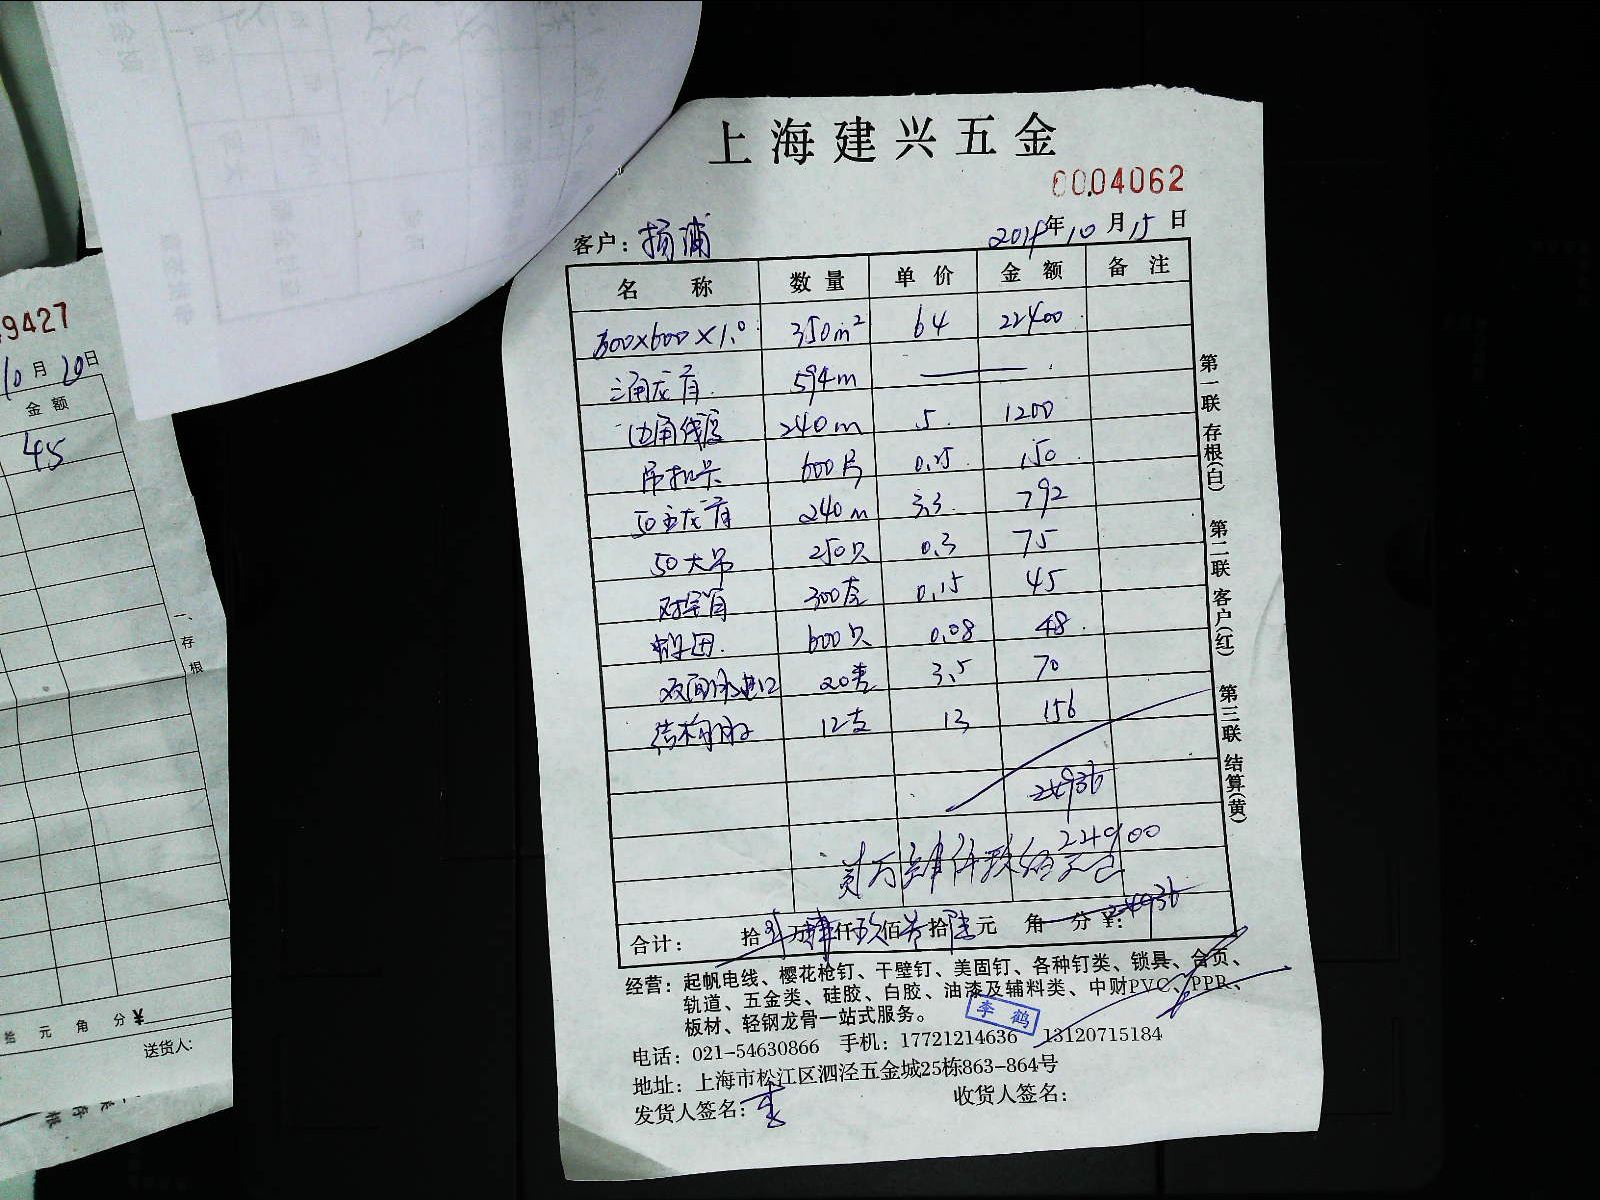 上海建兴五金
0004062
客户：杨浦 2019年10月15日
名称 数量 单价 金额 备注
600×600×1.0 350m² 64 22400
三角龙骨 594m ——
边角线 240m 5 1200
吊扣卡 600片 0.25 150
50主龙骨 240m 3.3 792
50大吊 250只 0.3 75
300套 0.15 45
600只 0.08 48
双面胶进口 20卷 3.5 70
结构胶 12支 13 156
24936
24900
贰万肆仟玖佰元正
合计： 拾贰万肆仟玖佰叁拾陆元 角 分 ¥：24936
经营：起帆电线、樱花枪钉、干壁钉、美固钉、各种钉类、锁具、合页、
轨道、五金类、硅胶、白胶、油漆及辅料类、中财PVC、PPR、
板材、轻钢龙骨一站式服务。
李鹤
电话：021-54630866 手机：17721214636 13120715184
地址：上海市松江区泗泾五金城25栋863-864号
发货人签名：李 收货人签名：
第一联 存根(白) 第二联 客户(红) 第三联 结算(黄)
9427
10月20日
金额
45
一、存根
元 角 分 ¥
送货人: